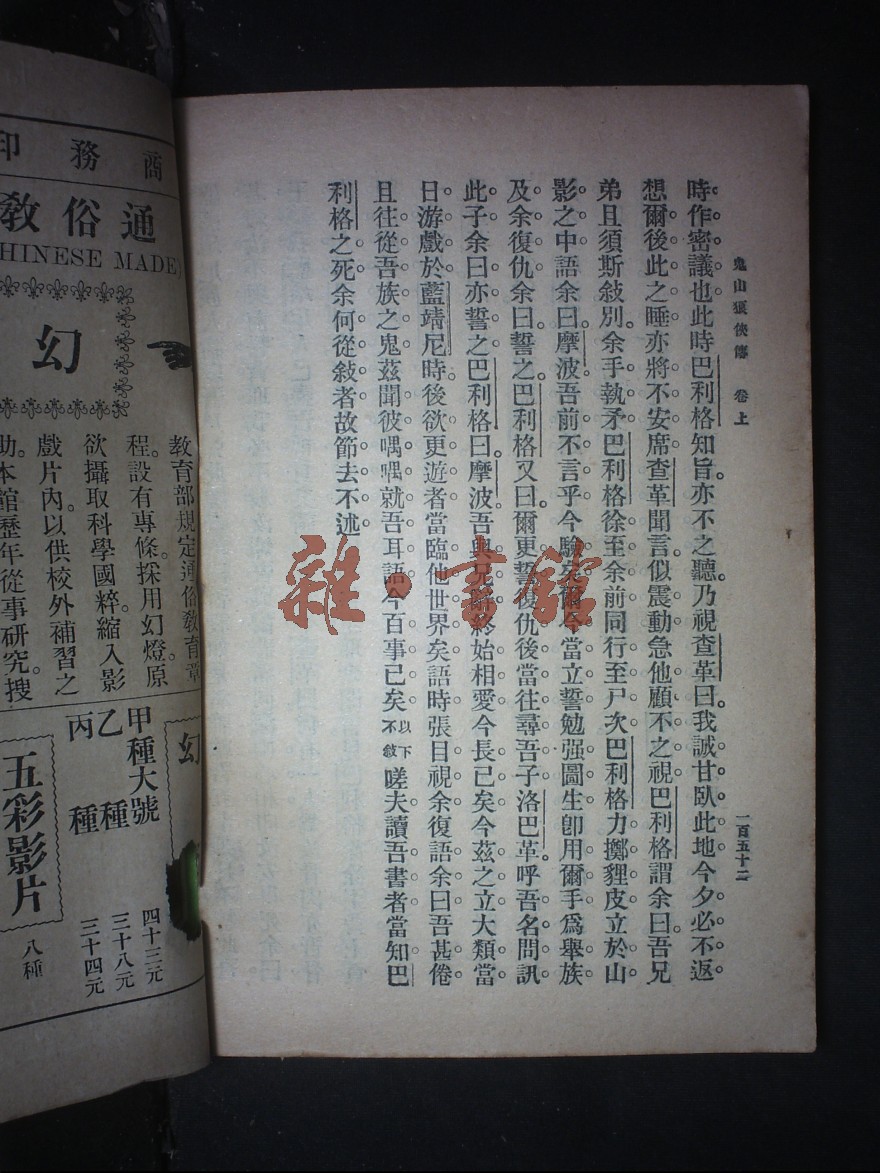 鬼山狼俠傳 卷上
一百五十二
時。作。密。議。也。此時巴利格知旨。亦不之聽。乃視查革曰。我。誠。甘。臥。此。地。今。夕。必。不。返。
想。爾。後。此。之。睡。亦。將。不。安。席。查革聞言。似震動。急他顧。不之視。巴利格謂余曰。吾。兄
弟。且。須。斯。敍。別。余手執矛。巴利格徐至余前。同行至尸次。巴利格力擲貍皮立於山
影之中。語余曰。摩波。吾。前。不。言。乎。今。驗。矣。爾。今。當。立。誓。勉。强。圖。生。卽。用。爾。手。爲。舉。族
及。余。復。仇。余曰。誓之。巴利格又曰。爾。更。誓。復。仇。後。當。往。尋。吾。子。洛。巴。革。呼。吾。名。問。訊
此。子。余曰。亦誓之。巴利格曰。摩波。吾。與。兄
始。相。愛。今。長。已。矣。今。茲。之。立。大。類。當
日。游。戲。於。藍靖尼時。後。欲。更。遊。者。當。臨。他。世。界。矣。語時張目視余。復語余曰。吾。甚。倦。
且。往。從。吾。族。之。鬼。茲聞彼喁喁就吾耳語。今。百。事。已。矣。以下不敍 嗟夫。讀。吾。書。者。當。知。巴
利格之死。余。何。從。敍。者。故。節。去。不。述。
雜·書館
商務印
通俗敎
CHINESE MADE
幻
敎育部規定通俗敎育章
程。設有專條。採用幻燈。原
欲攝取科學國粹。縮入影
戲片內。以供校外補習之
助。本館歷年從事研究。搜
幻
甲種大號 四十三元
乙種 三十八元
丙種 三十四元
五彩影片 八種